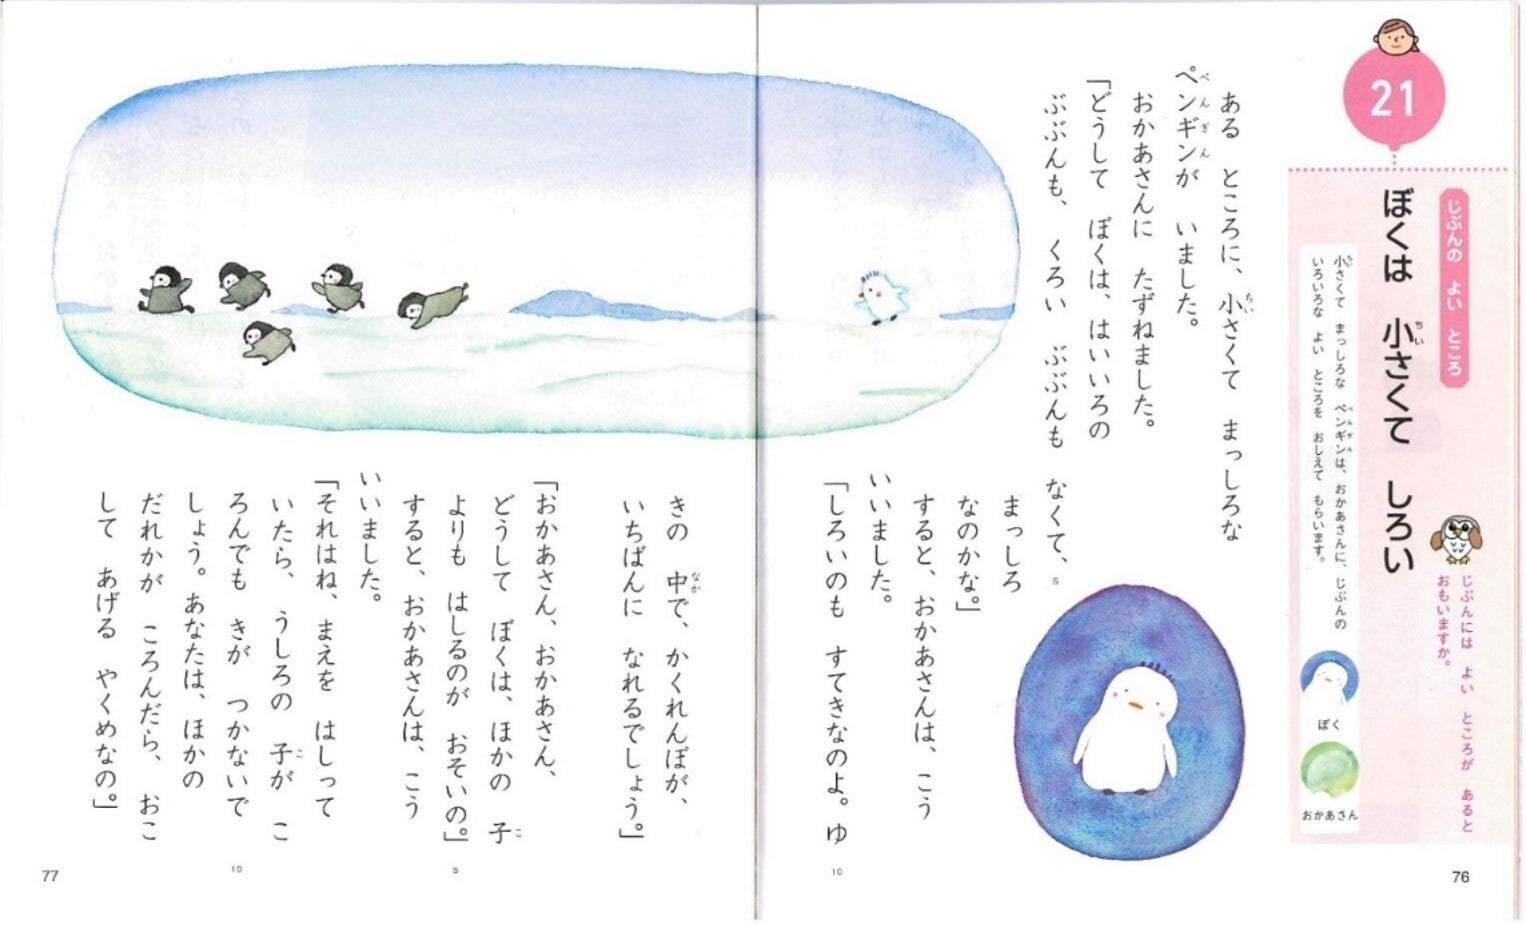 21
じぶんの よい ところ
じぶんには よい ところが あると
おもいますか。
ぼくは 小さくて しろい
ちい
小さくて まっしろな ペンギンは、おかあさんに、じぶんの
ちい
ぺんぎん
いろいろな よい ところを おしえて もらいます。
ぼく
おかあさん
ある ところに、小さくて まっしろな
ちい
ペンギンが いました。
ぺんぎん
おかあさんに たずねました。
「どうして ぼくは、はいいろの
ぶぶんも、くろい ぶぶんも なくて、
5
まっしろ
なのかな。」
すると、おかあさんは、こう
いいました。
「しろいのも すてきなのよ。ゆ
10
76
きの 中で、かくれんぼが、
なか
いちばんに なれるでしょう。」
「おかあさん、おかあさん、
どうして ぼくは、ほかの 子
こ
よりも はしるのが おそいの。」
5
すると、おかあさんは、こう
いいました。
「それはね、まえを はしって
いたら、うしろの 子が こ
こ
ろんでも きが つかないで
10
しょう。あなたは、ほかの
だれかが ころんだら、おこ
して あげる やくめなの。」
77